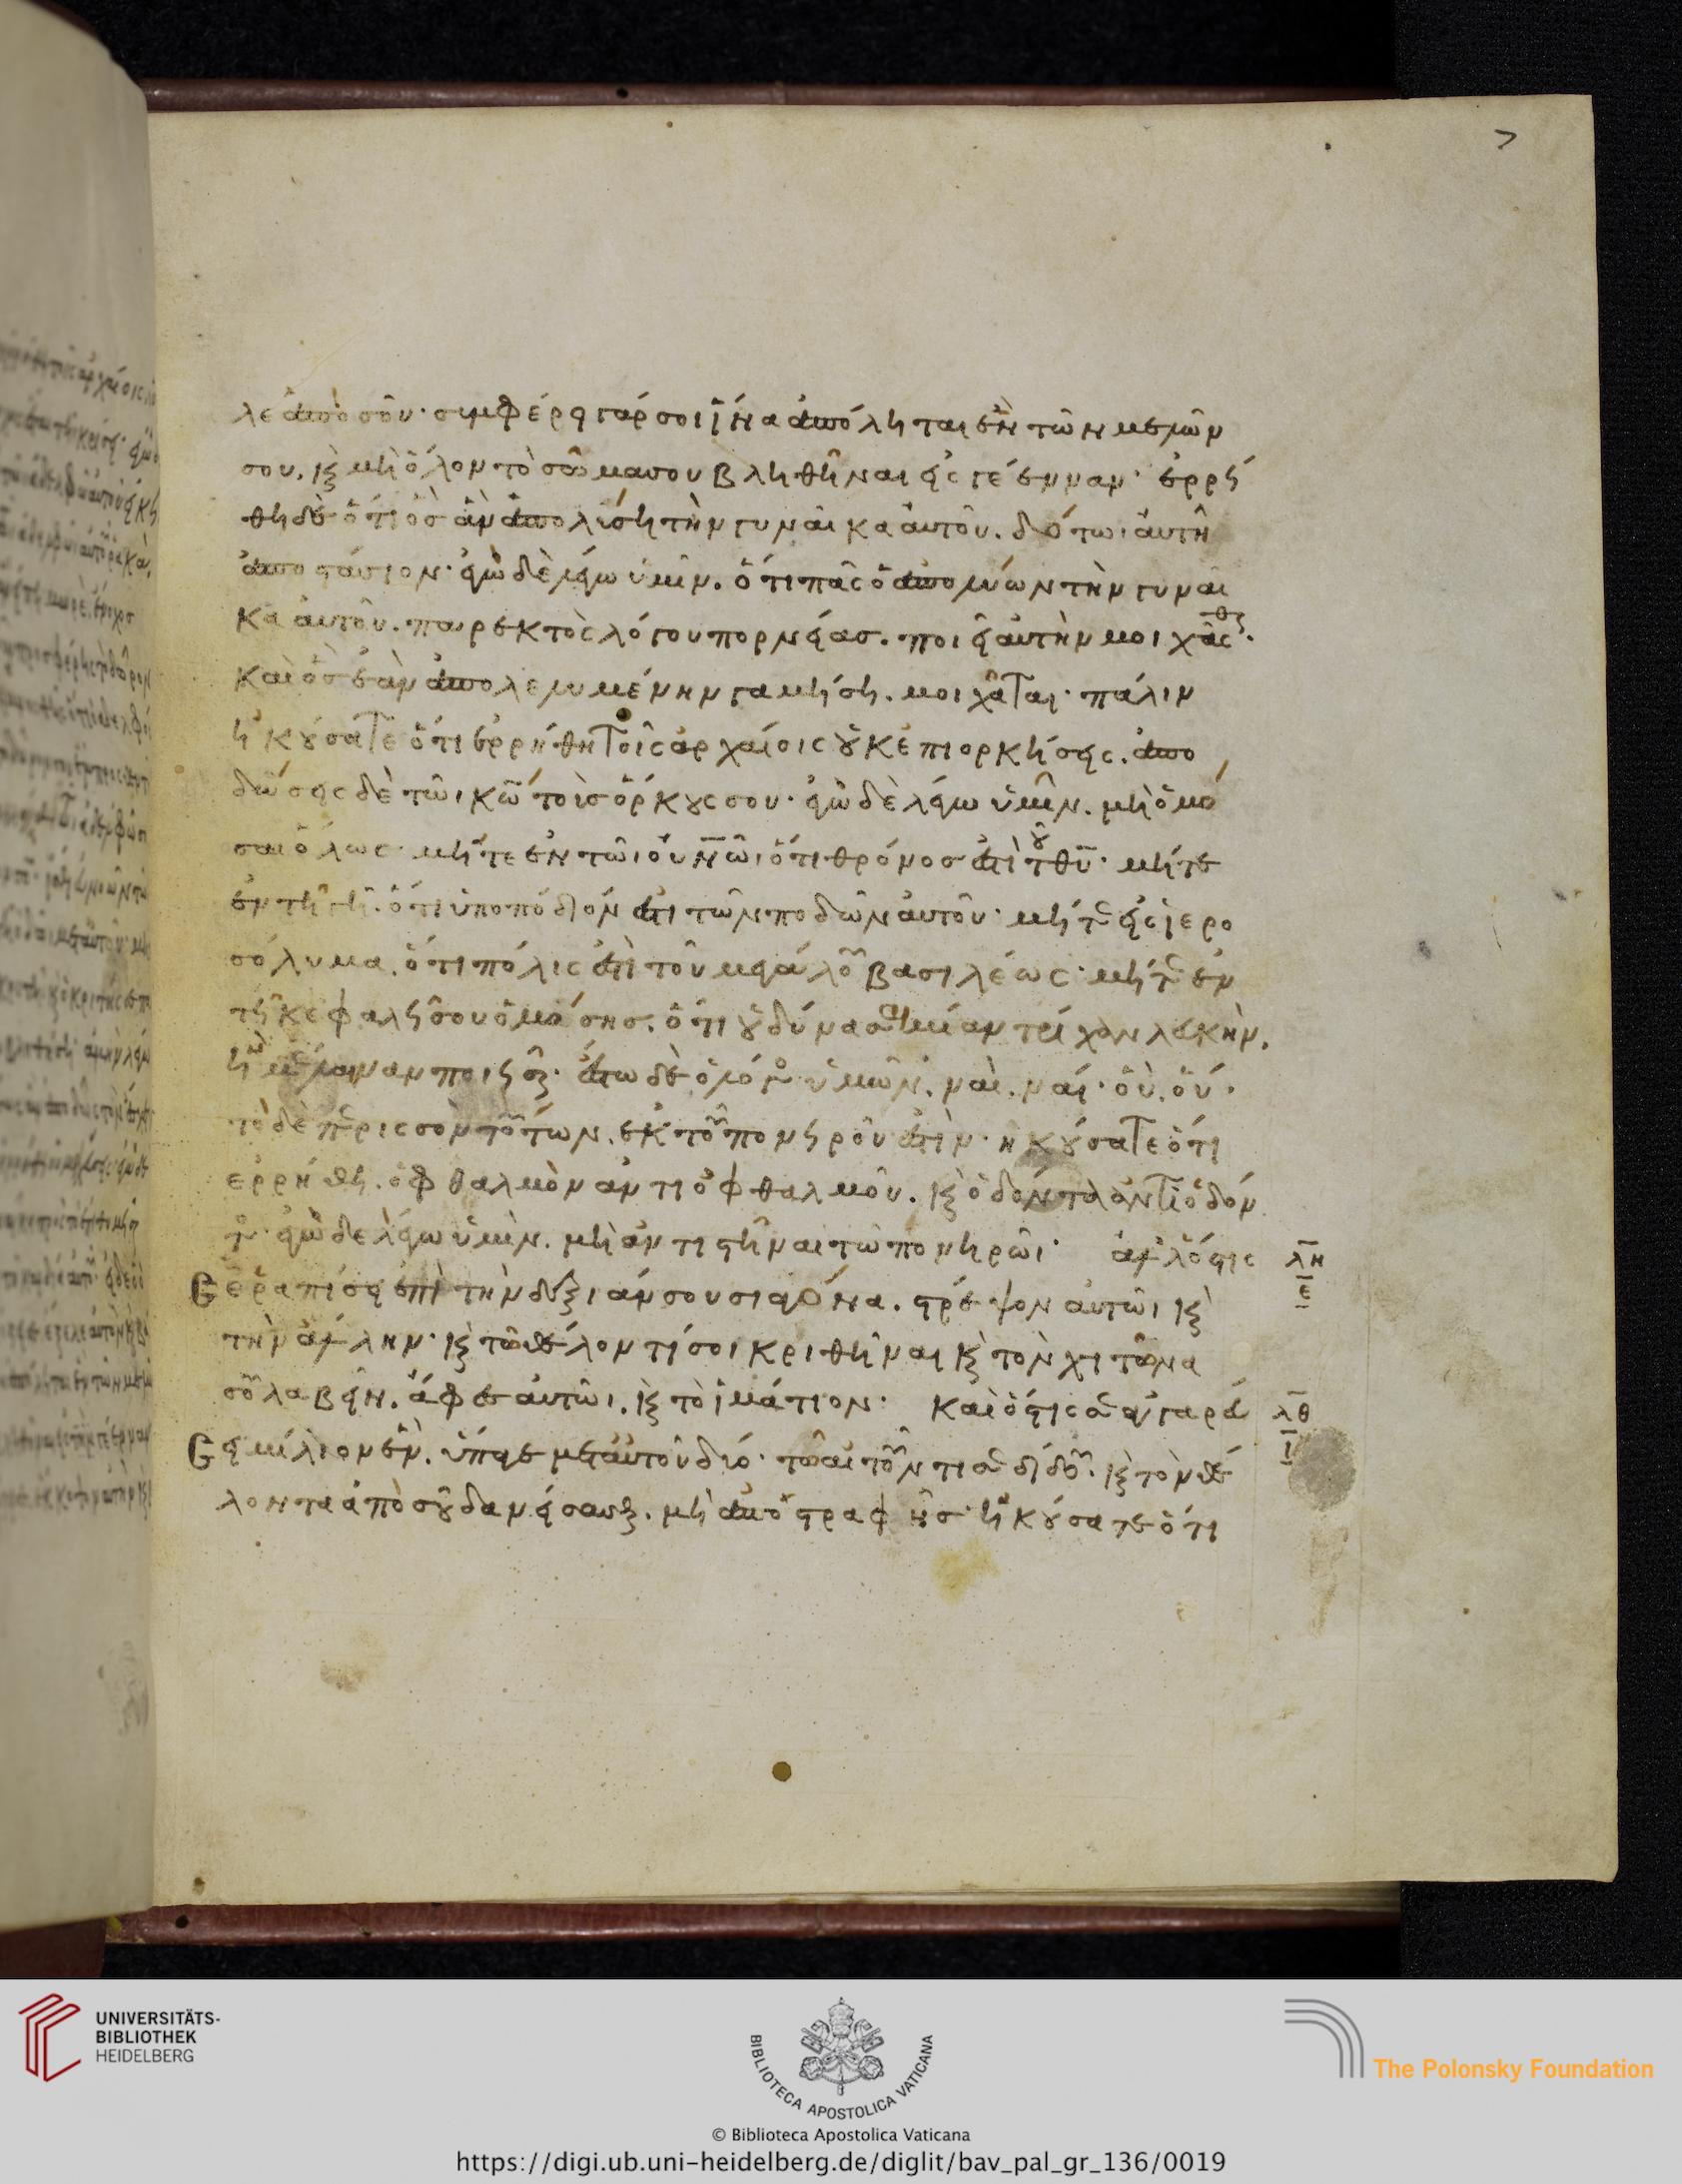 7
λε ἀπὸ σοῦ· συμφέρει γάρ σοι ἵνα ἀπόληται ἓν τῶν μελῶν
σου. κ(αὶ) μὴ ὅλον τὸ σῶμα σου βληθῆναι εἰς γέενναν· ἐρρέ
θη δὲ ὅτι ὃς ἂν ἀπολύση τὴν γυναῖκα αὐτοῦ. δότω αὐτῆ
ἀποστάσιον· ἐγὼ δὲ λέγω ὑμῖν. ὅτι πᾶς ὁ ἀπολύων τὴν γυναῖ
κα αὐτοῦ. παρεκτὸς λόγου πορνείας. ποιεῖ αὐτὴν μοιχᾶσθαι.
καὶ ὃς ἐὰν ἀπολελυμένην γαμήση. μοιχᾶται· πάλιν
ἠκούσατε ὅτι ἐρρήθη τοῖς ἀρχαίοις οὐκ ἐπιορκήσεις. ἀπο
δώσεις δὲ τῶι κῶ τοὺς ὅρκους σου· ἐγὼ δὲ λέγω ὑμῖν. μὴ ὀμό
σαι ὅλως· μήτε ἐν τῶι οὐνῶι ὅτι θρόνος ἐστὶ τοῦ θῦ· μήτε
ἐν τῆ γῆ. ὅτι ὑποπόδιον ἐστι τῶν ποδῶν αὐτοῦ· μήτε εἰς ἱερο
σόλυμα. ὅτι πόλις ἐστὶ τοῦ μεγάλου βασιλέως· μήτε ἐν
τῆ κεφαλῆ σου ὀμόσης. ὅτι οὐ δύνασαι μίαν τρίχαν λευκὴν.
ἢ μέλαιναν ποιῆσαι· ἔστω δὲ ὁ λόγος ὑμῶν. ναὶ. ναί· οὒ. οὔ·
τὸ δὲ περισσὸν τούτων. ἐκ τοῦ πονηροῦ ἐστὶν· ἠκούσατε ὅτι
ἐρρήθη. ὀφθαλμὸν ἀντὶ ὀφθαλμοῦ. κ(αὶ) ὀδόντα ἀντὶ ὀδόν
τος· ἐγὼ δὲ λέγω ὑμῖν. μὴ ἀντιστῆναι τῶ πονηρῶι· ἀλλ' ὅστις λη
Ϲε ῥαπίσει ἐπὶ τὴν δεξιάν σου σιαγόνα. στρέψον αὐτῶι κ(αὶ) ε
τὴν ἄλλην· κ(αὶ) τῶ θέλοντί σοι κριθῆναι κ(αὶ) τὸν χιτῶνα
σου λαβεῖν. ἄφες αὐτῶι. κ(αὶ) τὸ ἱμάτιον· καὶ ὅστις σε ἀγγαρεύ λθ
Ϲει μίλιον ἓν. ὕπαγε μετ' αὐτοῦ δύο· τῶ αἰτοῦντι σε δίδου. κ(αὶ) τὸν θέ ι
λοντα ἀπὸ σοῦ δανείσασθαι. μὴ ἀποστραφῆς· ἠκούσατε ὅτι
UNIVERSITÄTS-
BIBLIOTHEK
HEIDELBERG
BIBLIOTECA APOSTOLICA VATICANA
© Biblioteca Apostolica Vaticana
The Polonsky Foundation
https://digi.ub.uni-heidelberg.de/diglit/bav_pal_gr_136/0019